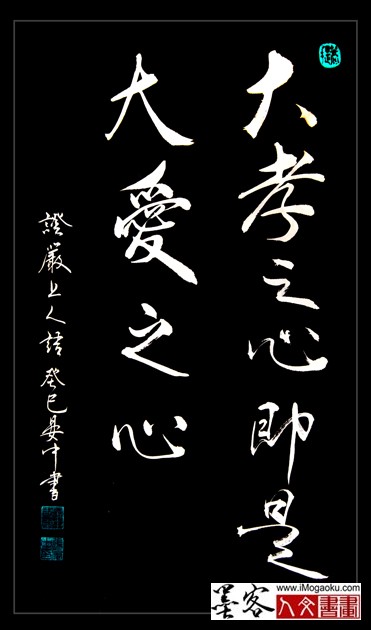 大孝之心即是
大愛之心
證嚴上人語 癸巳晏中書
www.iMogaoku.com
墨客 人文書畫